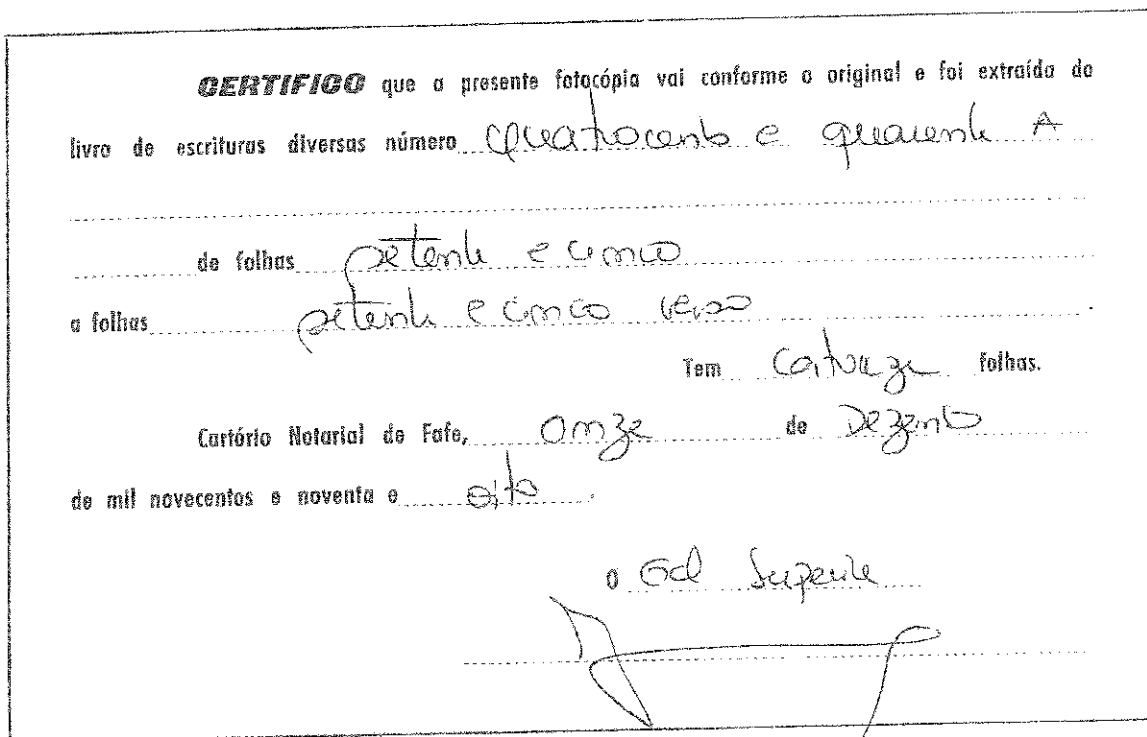 CERTIFICO que a presente fotocópia vai conforme o original e foi extraída do
livro de escrituras diversas número quatrocentos e quarenta A
de folhas setenta e cinco
a folhas setenta e cinco verso
Tem catorze folhas.
Cartório Notarial de Fafe, onze de Dezembro
de mil novecentos e noventa e oito.
o